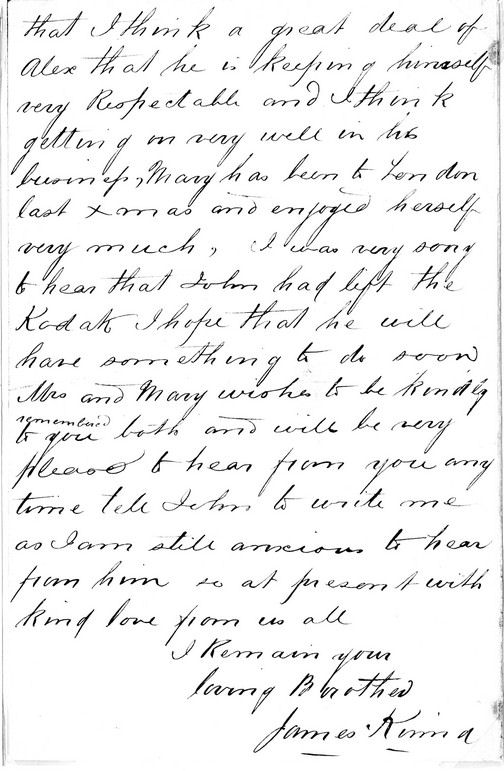 that I think a great deal of
Alex that he is keeping himself
very Respectable and I think
getting on very well in his
business, Mary has been to London
last Xmas and enjoyed herself
very much, I was very sorry
to hear that John had left the
Kodak I hope that he will
have something to do soon
Mrs and Mary wishes to be kindly
remembered
to you both and will be very
please to hear from you any
time tell John to write me
as I am still anxious to hear
from him so at present with
kind love from us all
I Remain your
loving Brother
James